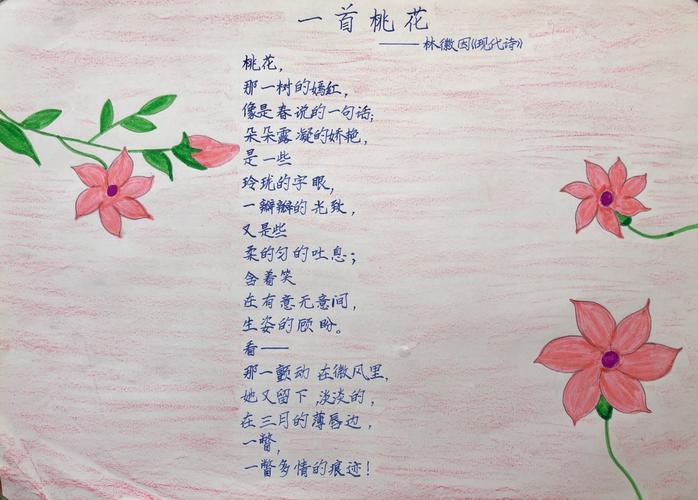 一首桃花
——林徽因《现代诗》
桃花，
那一树的嫣红，
像是春说的一句话；
朵朵露凝的娇艳，
是一些
玲珑的字眼，
一瓣瓣的光致，
又是些
柔的匀的吐息；
含着笑
在有意无意间，
生姿的顾盼。
看——
那一颤动在微风里，
她又留下,淡淡的，
在三月的薄唇边，
一瞥，
一瞥多情的痕迹！